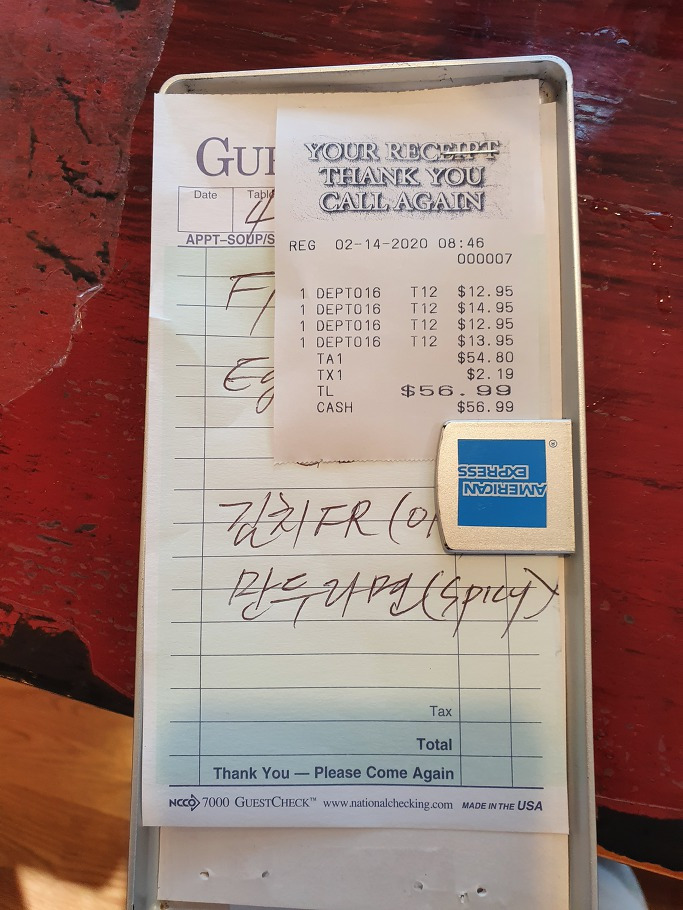 GUE
Date Table
4
APPT–SOUP/S
YOUR RECEIPT
THANK YOU
CALL AGAIN
REG 02-14-2020 08:46
000007
1 DEPT016 T12 $12.95
1 DEPT016 T12 $14.95
1 DEPT016 T12 $12.95
1 DEPT016 T12 $13.95
TA1 $54.80
TX1 $2.19
TL $56.99
CASH $56.99
AMERICAN
EXPRESS
®
김치FR
만두라면(spicy)
Tax
Total
Thank You — Please Come Again
NCCO 7000 GUESTCHECK™ www.nationalchecking.com MADE IN THE USA